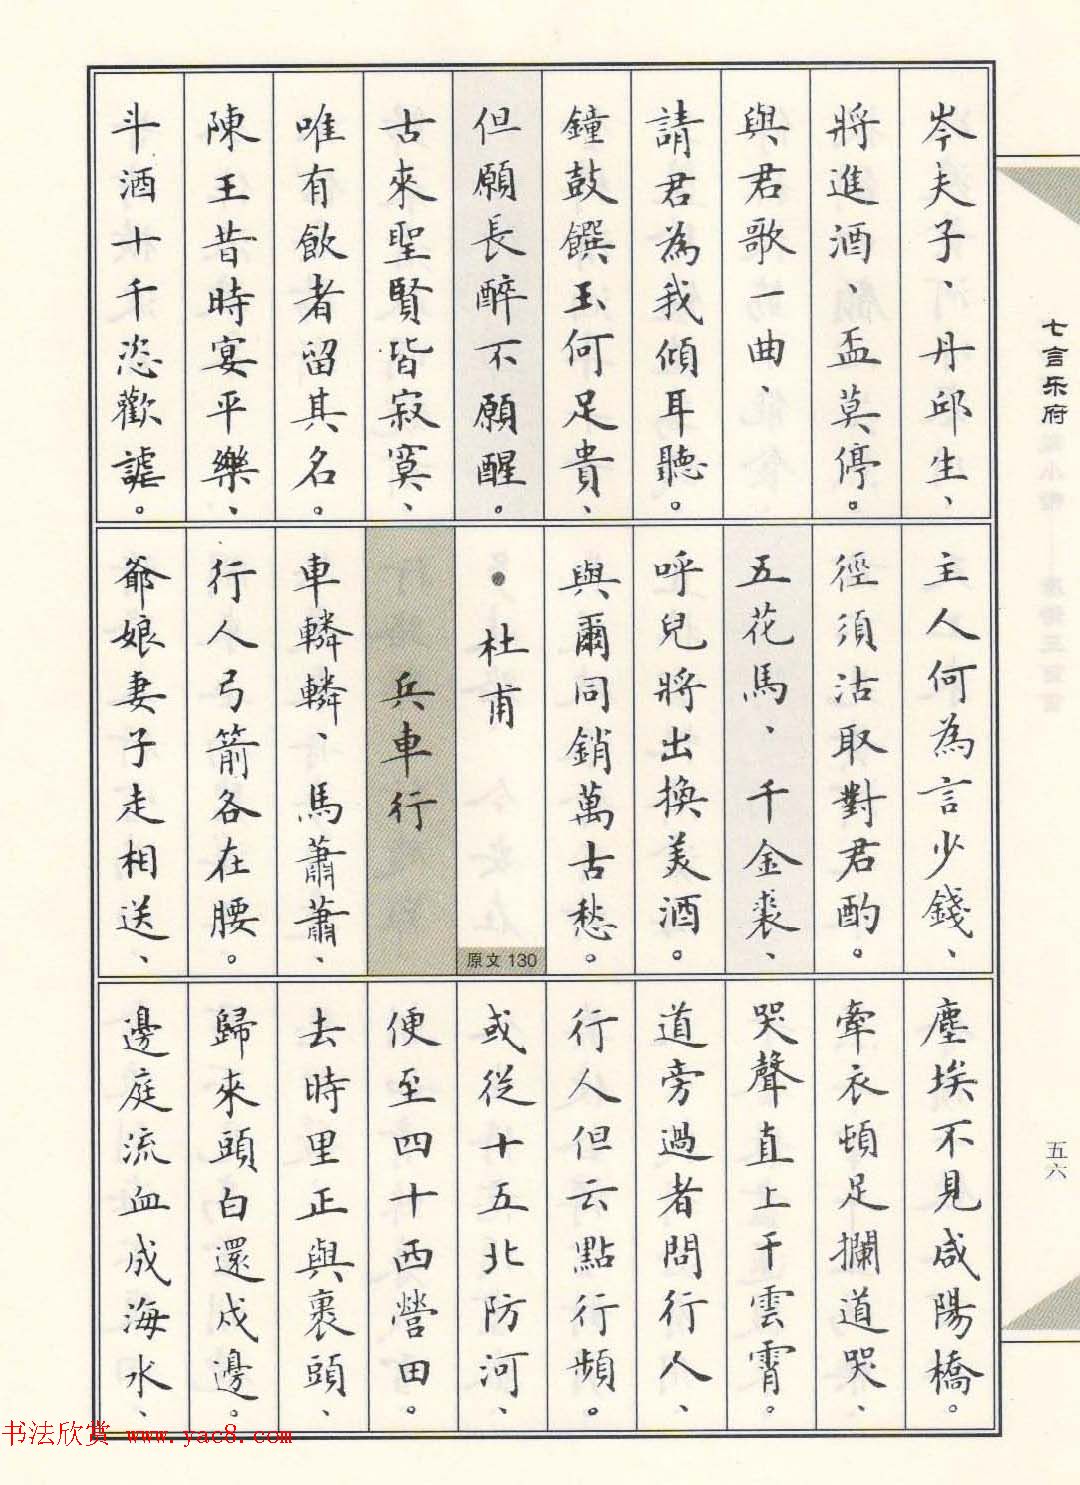 岑夫子、丹邱生、
將進酒、盃莫停。
與君歌一曲、
請君為我傾耳聽。
鐘鼓饌玉何足貴、
但願長醉不願醒。
古來聖賢皆寂寞、
唯有飲者留其名。
陳王昔時宴平樂、
斗酒十千恣歡謔。
主人何為言少錢、
徑須沽取對君酌。
五花馬、千金裘、
呼兒將出換美酒。
與爾同銷萬古愁。
●杜甫
原文 130
兵車行
車轔轔、馬蕭蕭、
行人弓箭各在腰。
爺娘妻子走相送、
塵埃不見咸陽橋。
牽衣頓足攔道哭、
哭聲直上干雲霄。
道旁過者問行人、
行人但云點行頻。
或從十五北防河、
便至四十西營田。
去時里正與裹頭、
歸來頭白還戍邊。
邊庭流血成海水、
七言乐府
五六
书法欣赏 www.yac8.com